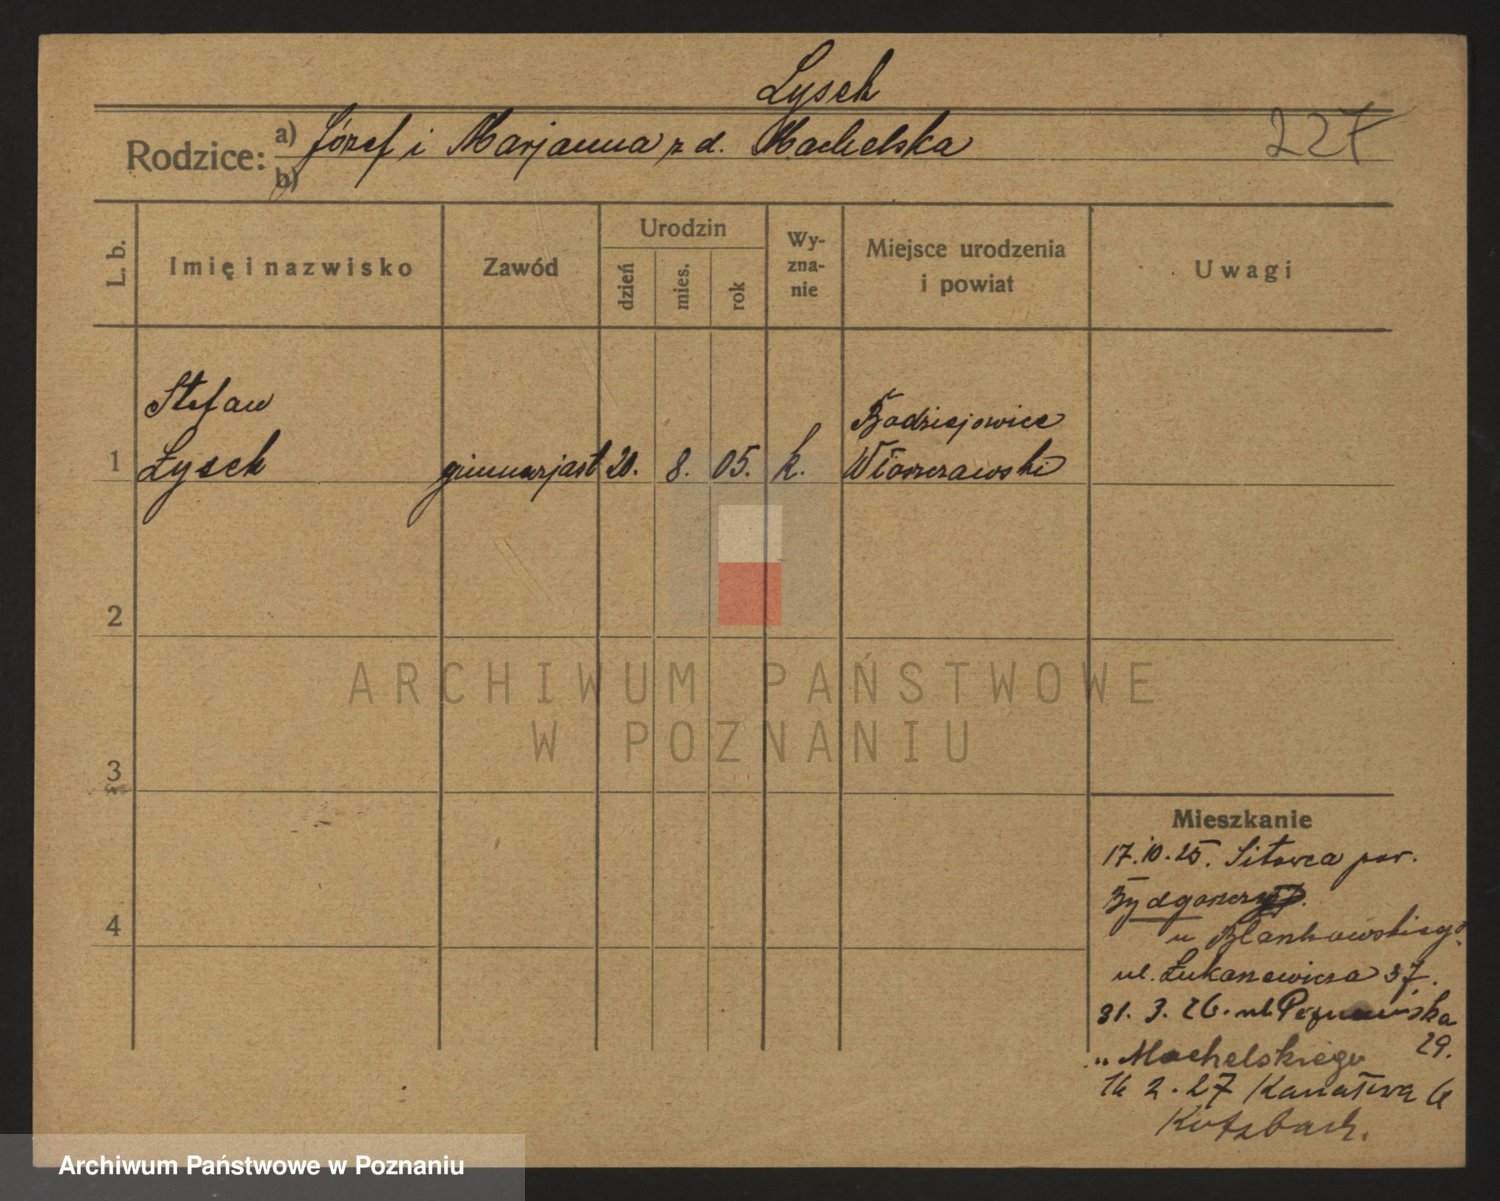 Lysek
Rodzice: a) Józef i Marjanna z d. Machelska 227
b)
L. b. Imię i nazwisko Zawód Urodzin dzień mies. rok Wy-zna-nie Miejsce urodzenia i powiat Uwagi
Stefan
1 Lysek gimnazjast 20. 8. 05. k. Radziejowice
Włoszczawski
2
3
4
Mieszkanie
17.10.25. Sitowca pow.
Bydgoszcz
u Blankowskiego
ul. Łukasiewicza 37.
31. 3. 26. ul. Poznańska
29.
" Machelskiego
16 2. 27 Kanałowa 6
Kutzbach.
ARCHIWUM PAŃSTWOWE
W POZNANIU
Archiwum Państwowe w Poznaniu